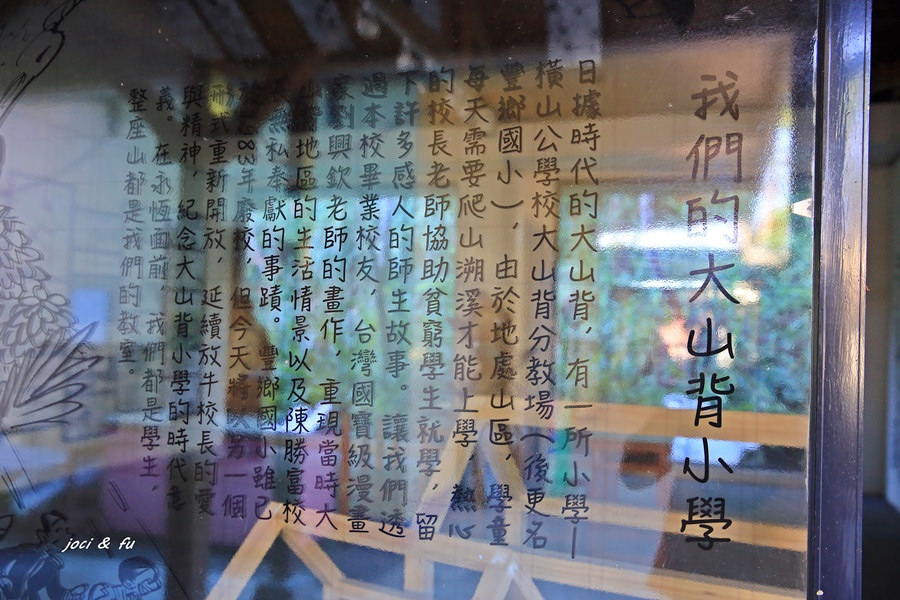 我們的大山背小學
日據時代的大山背，有一所小學—
橫山公學校大山背分教場（後更名
豐鄉國小），由於地處山區，學童
每天需要爬山溯溪才能上學。熱心
的校長老師協助貧窮學生就學，留
下許多感人的師生故事。讓我們透
過本校畢業校友，台灣國寶級漫畫
家劉興欽老師的畫作，重現當時大
山背地區的生活情景以及陳勝富校
長無私奉獻的事蹟。豐鄉國小雖已
於83年廢校，但今天將以另一個
形式重新開放，延續放牛校長的愛
與精神，紀念大山背小學的時代意
義。在永恆面前，我們都是學生，
整座山都是我們的教室。
joci & fu